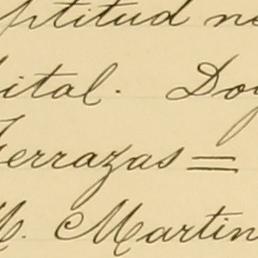 ptitud ne
ital. Doy
Terrazas =
M. Martin